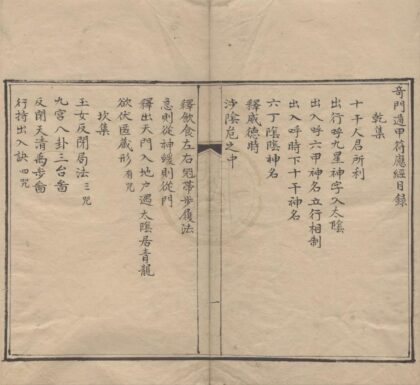 奇門遁甲符應經目錄
乾集
十干人君所利
出行呼九星神字入太陰
出入呼六甲神名立行相制
出入呼時下十干神名
六丁陰陰神名
釋威德時
涉陰危之中
釋飲食左右迴帶步履法
急則從神緩則從門
釋出天門入地户過太陰居青龍
欲伏匿藏形 有咒
坎集
玉女反閉局法 三咒
九宮八卦三台啚
反閉天清禹步啚
行持出入訣 四咒